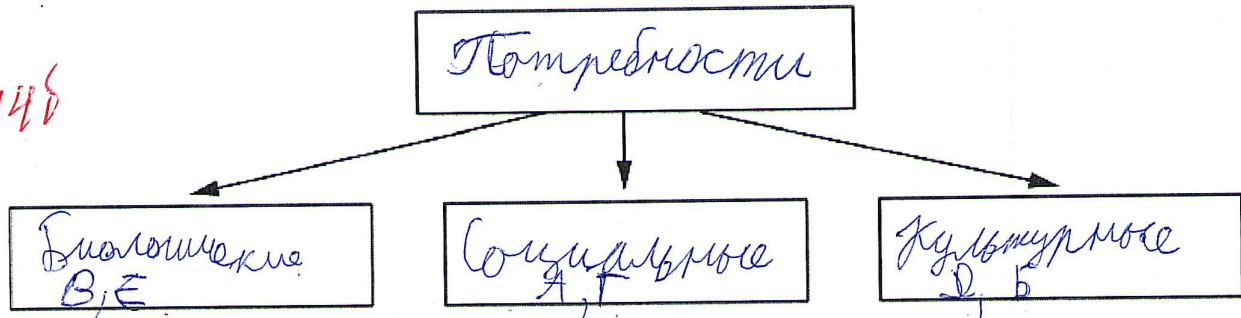 Потребности
14б
Биологические
В, Е
Социальные
А, Г
Культурные
Д, Б